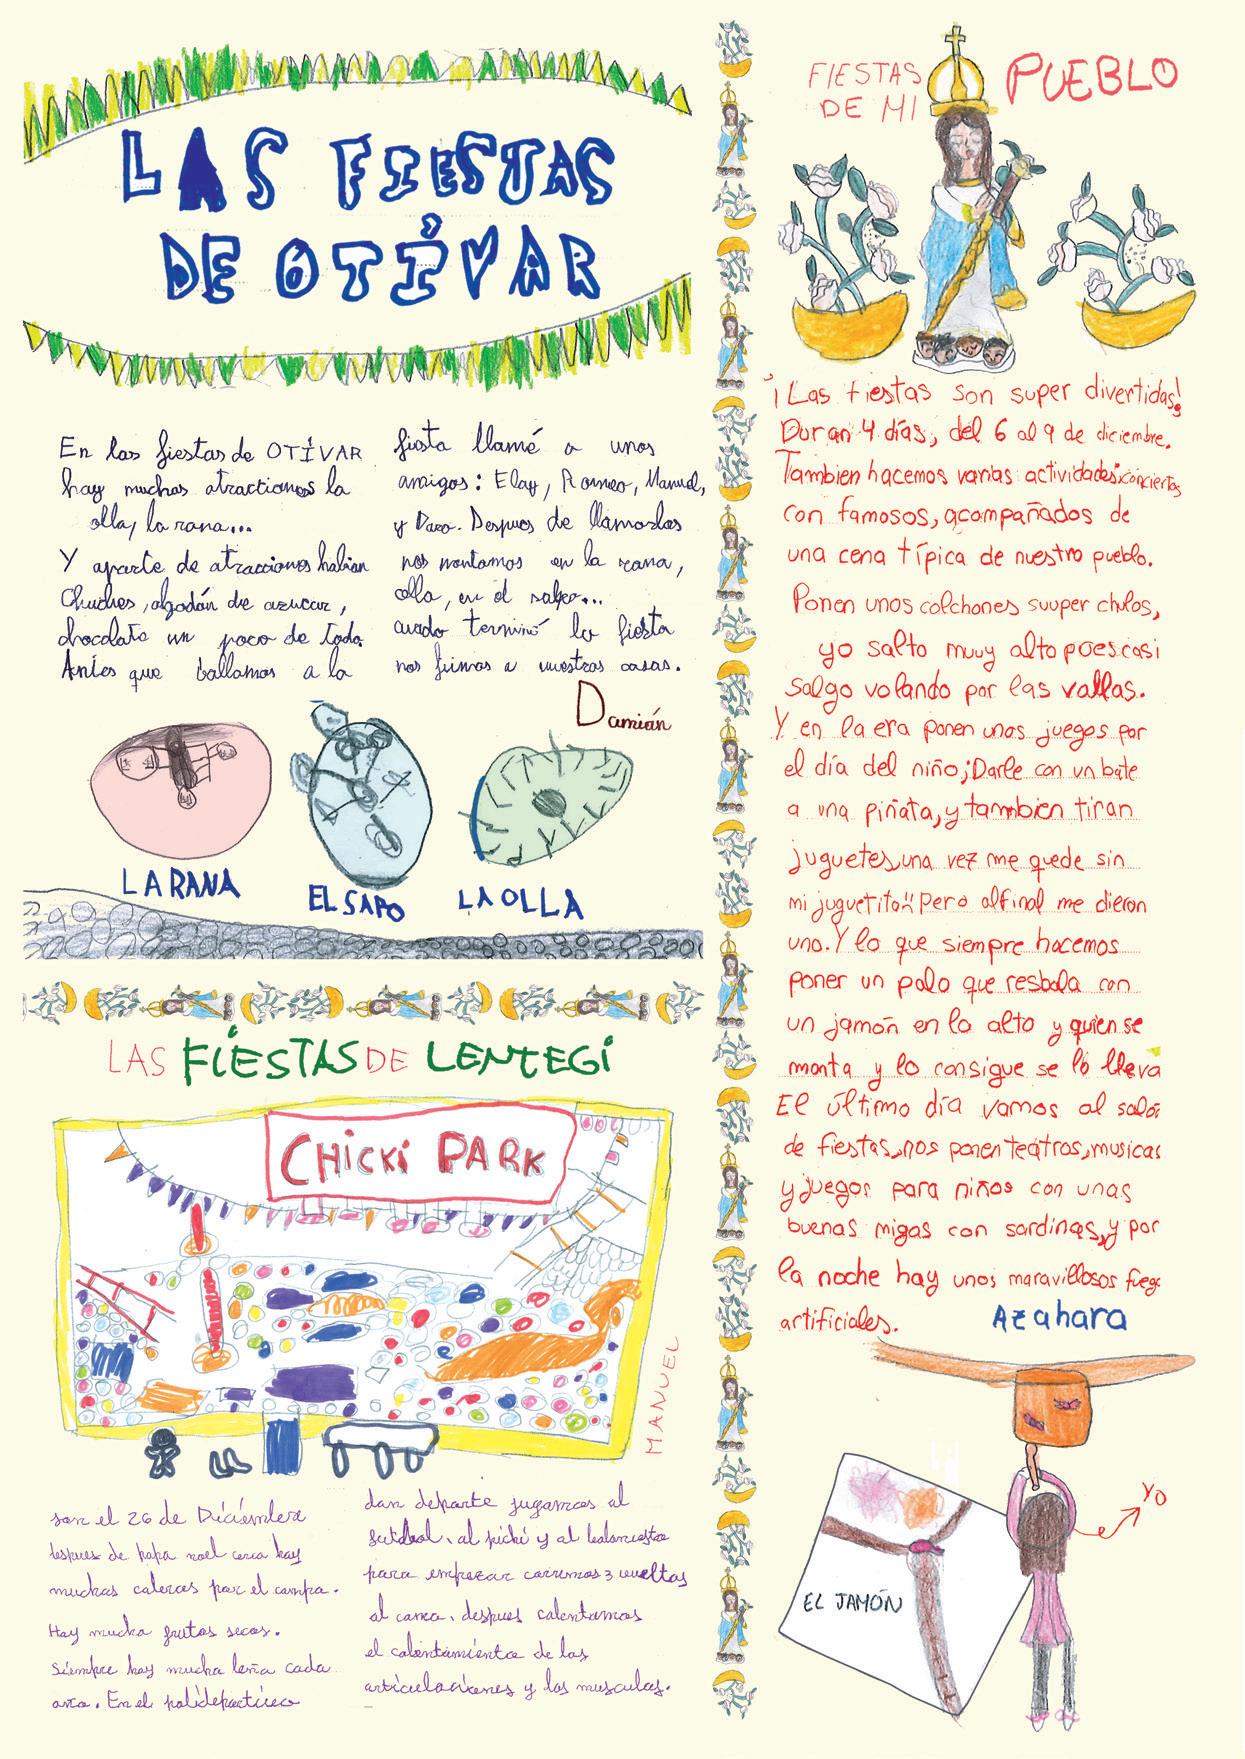 LAS FIESTAS
DE OTÍVAR
En las fiestas de OTÍVAR
hay muchas atractiones la
olla, la rana...
Y aparte de atracciones habian
Chuches, algodón de azucar,
chocolate un poco de todo.
Antes que ballamos a la
fiesta llamé a unos
amigos: Elay, Romeo, Manuel,
y Dazo. Despues de llamarlos
nos montamos en la rana,
olla, en el sapo...
cuado terminó la fiesta
nos fuimos a nuestras casas.
Damián
LA RANA
EL SAPO
LA OLLA
LAS FIESTAS DE LENTEGI
CHICKI PARK
MANUEL
son el 26 de Diciembre
despues de papa noel cerca hay
muchas caleras por el campo.
Hay mucho frutos secos.
Siempre hay mucha leña cada
arco. En el polideportivo
dan deporte jugamos al
futbol, al pichi y al baloncesto
para empezar corremos 3 vueltas
al campo, despues calentamos
el calentamiento de las
articulaciones y los musculos.
FIESTAS
DE MI PUEBLO
¡Las fiestas son super divertidas!
Duran 4 días, del 6 al 9 de diciembre.
Tambien hacemos varias actividades: conciertos
con famosos, acompañados de
una cena típica de nuestro pueblo.
Ponen unos colchones suuper chulos,
yo salto muuy alto poes casi
salgo volando por las vallas.
Y en la era ponen unos juegos por
el día del niño; Darle con un bate
a una piñata, y tambien tiran
juguetes, una vez me quede sin
mi juguetito!! Pero alfinal me dieron
uno. Y lo que siempre hacemos
poner un palo que resbala con
un jamón en lo alto y quien se
monta y lo consigue se lo lleva
El último día vamos al salón
de fiestas, nos ponen teatros, musicas
y juegos para niños con unas
buenas migas con sardinas, y por
la noche hay unos maravillosos fuegos
artificiales.
Azahara
YO
EL JAMÓN